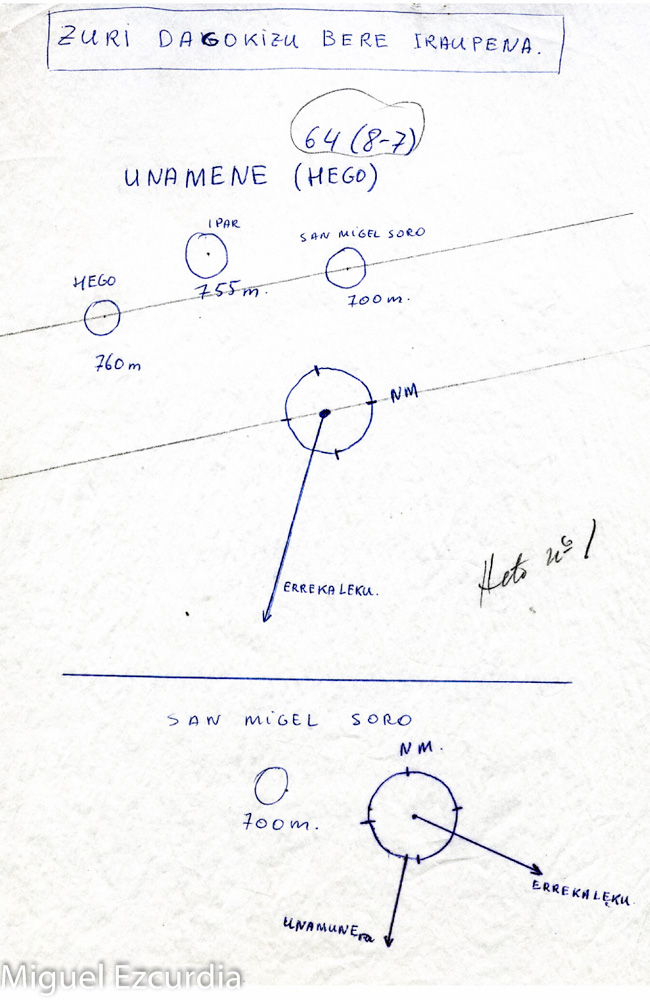 ZURI DAGOKIZU BERE IRAUPENA.
64 (8-7)
UNAMENE (HEGO)
IPAR
SAN MIGEL SORO
HEGO
755 m.
700 m.
760 m
NM
ERREKALEKU.
nº 1
SAN MIGEL SORO
NM.
700 m.
ERREKALEKU.
UNAMUNEra
Miguel Ezcurdia